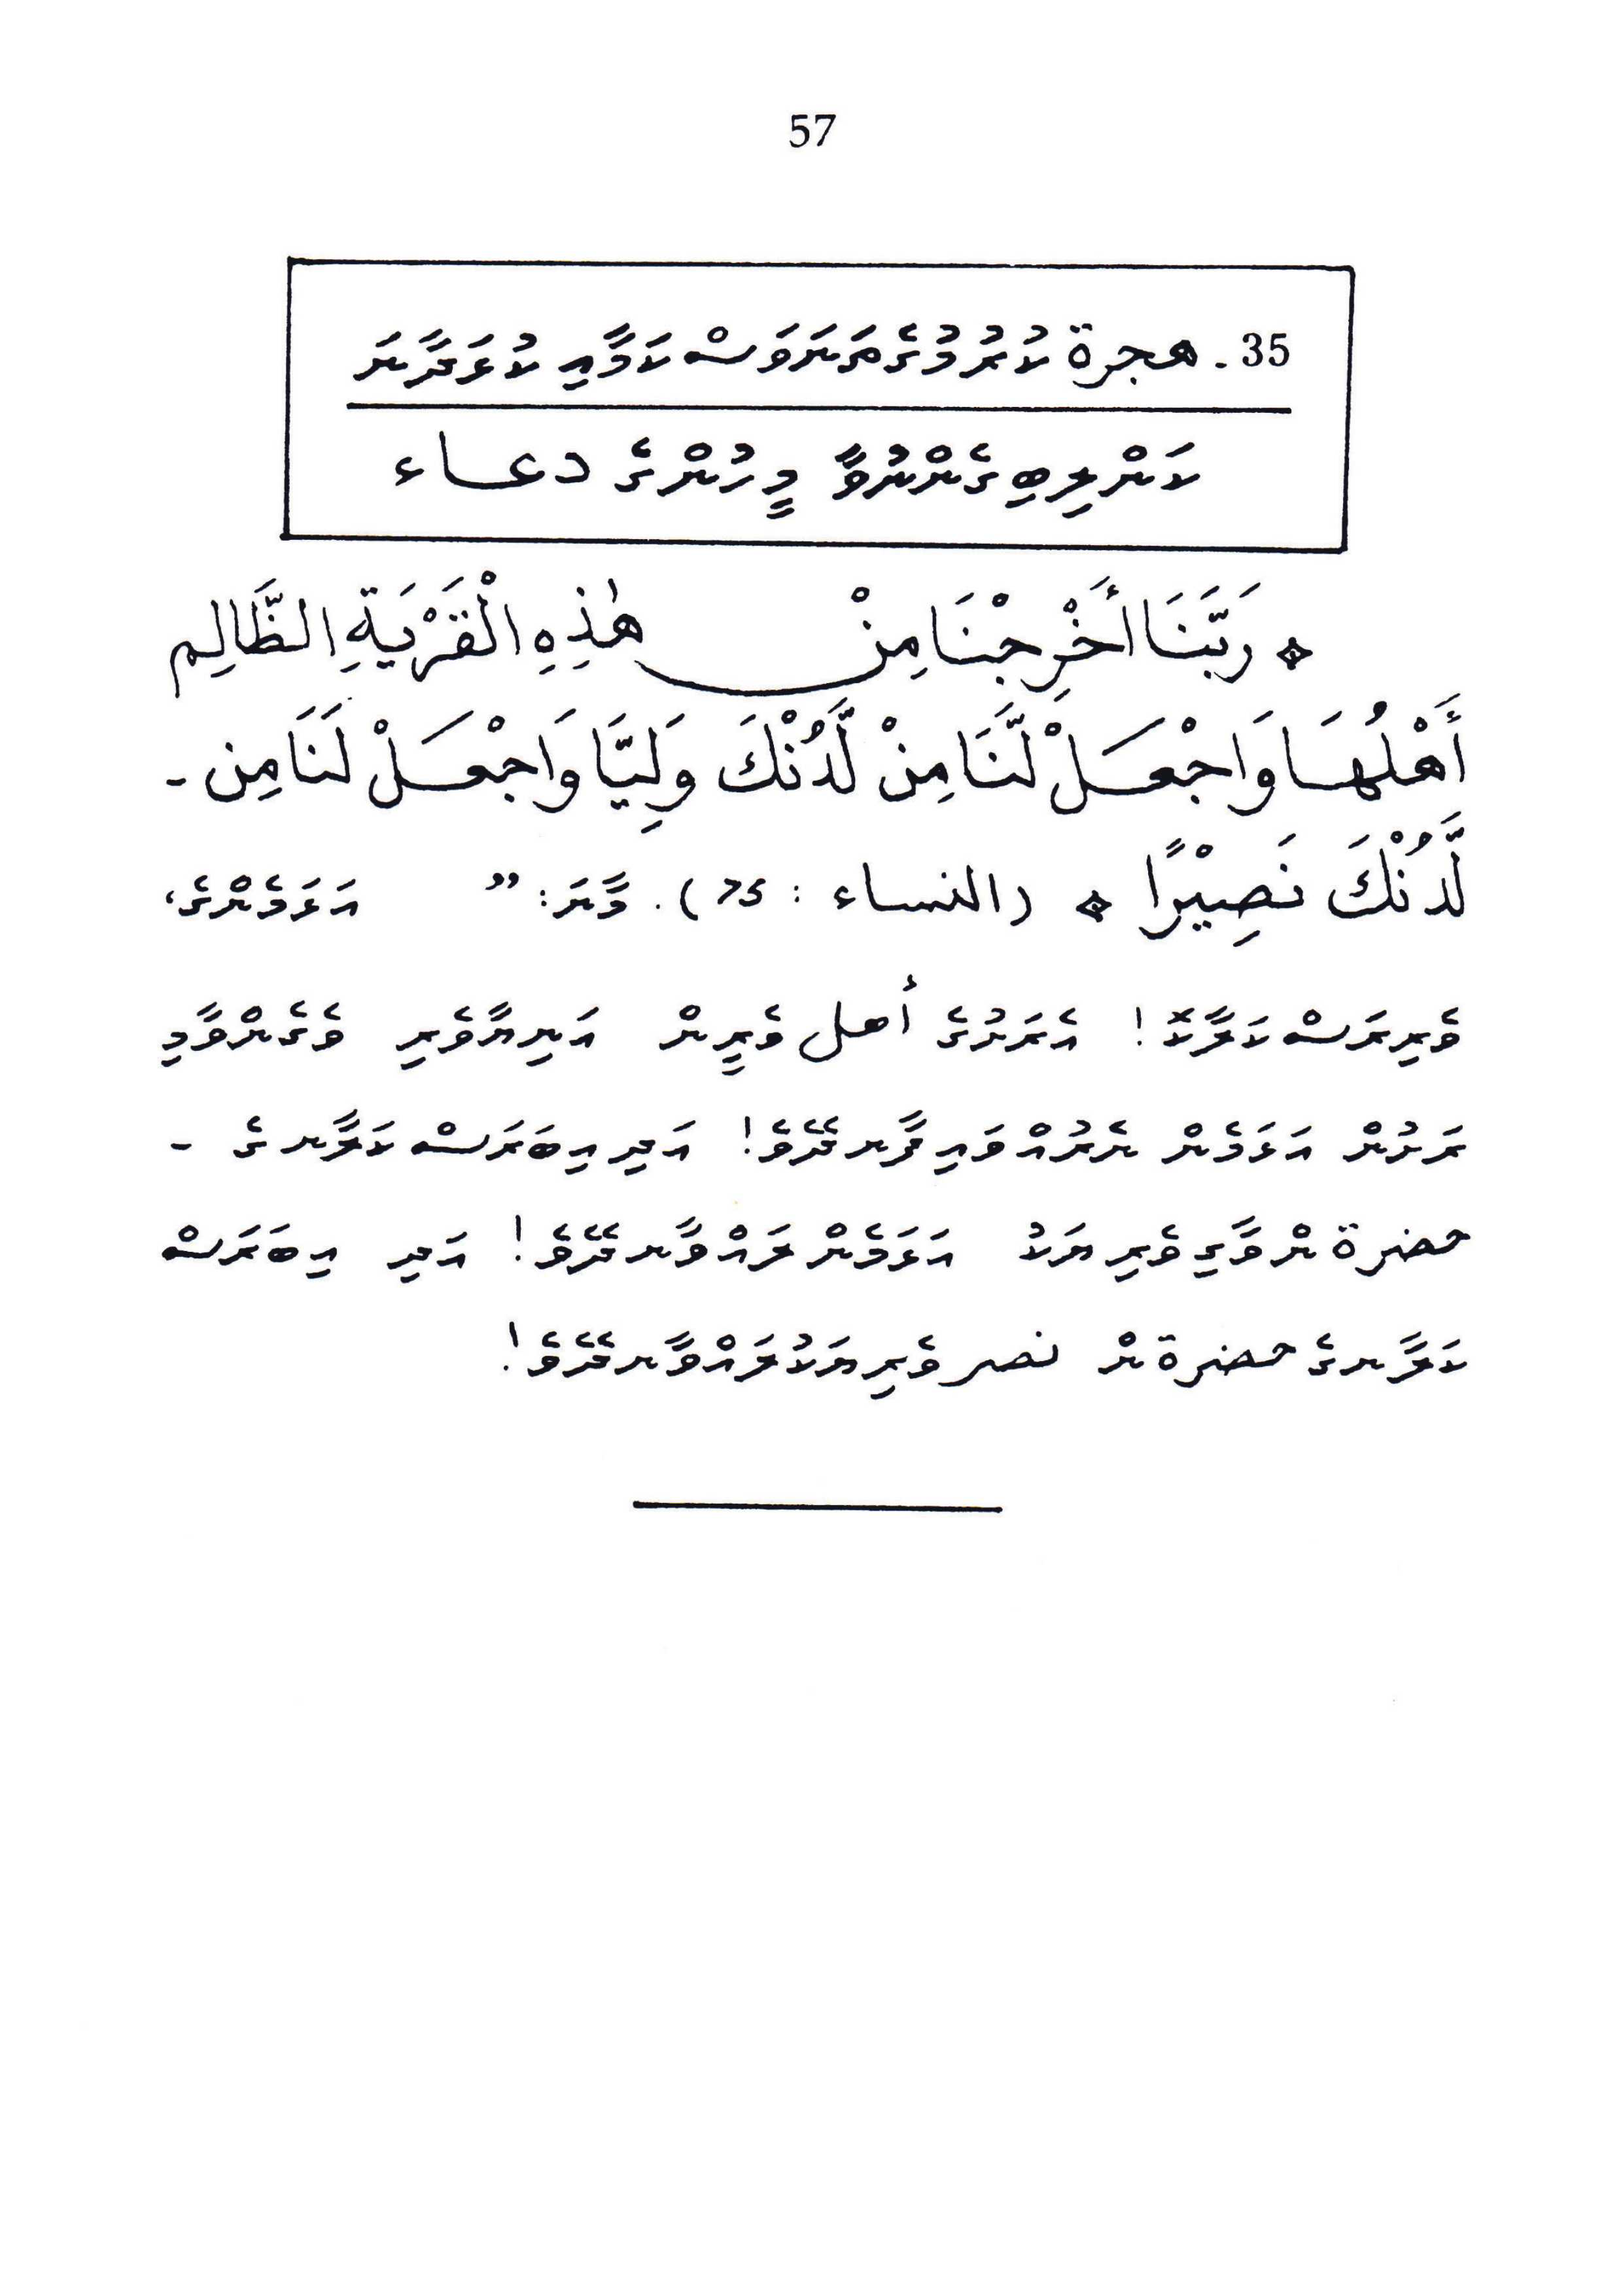 57
35. هجرة ކުރުމުގެ ތަނަވަސްކަމާއި ކުޅަދާނަ
ކަން ލިބިގެންނުވާ މީހުންގެ دعاء
* رَبَّنَا أَخْرِجْنَا مِنْ هٰذِهِ الْقَرْيَةِ الظَّالِمِ
أَهْلُهَا وَاجْعَلْ لَّنَا مِنْ لَّدُنْكَ وَلِيًّا وَاجْعَلْ لَنَا مِن -
لَّدُنْكَ نَصِيْرًا * (النساء : 75). މާނަ: " އަޅަމެންގެ،
ވެރިރަސްކަލާކޮ! އެރަށުގެ أهل ވެރީން އަނިޔާވެރި ވެގެންވާމި
ރަށުން އަޅަމެން ނެރުއްވައިފާނދޭވެ! އަދި އިބަރަސްކަލާނގެ -
حضرة ން ވާގިވެރިޔަކު އަޅަމެން ލައްވާނދޭވެ! އަދި އިބަރަސް
ކަލާނގެ حضرة ން نصر ވެރިޔަކުލައްވާނދޭވެ!